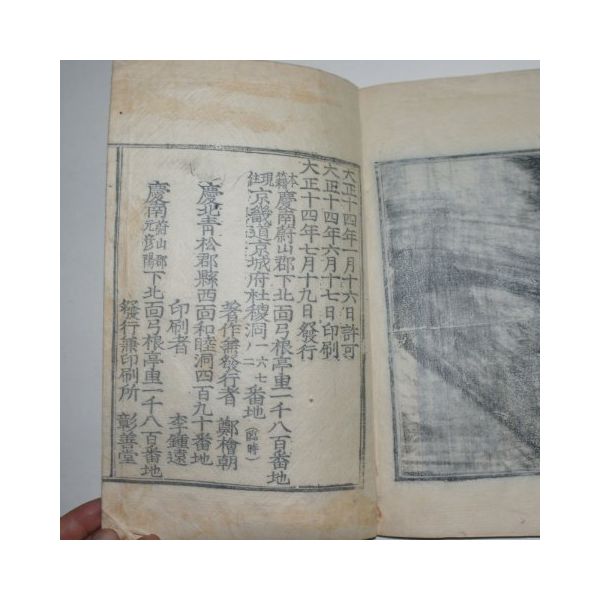 大正十四年一月十六日許可
大正十四年六月十七日印刷
大正十四年七月十九日發行
本籍慶南蔚山郡下北面弓根亭里一千八百番地
現住京畿道京城府社稷洞一六七ノ二番地(臨時)
著作兼發行者 鄭檜朝
慶北靑松郡縣西面和睦洞四百九十番地
印刷者 李鍾遠
慶南蔚山郡元彦陽下北面弓根亭里一千八百番地
發行兼印刷所 彰善堂